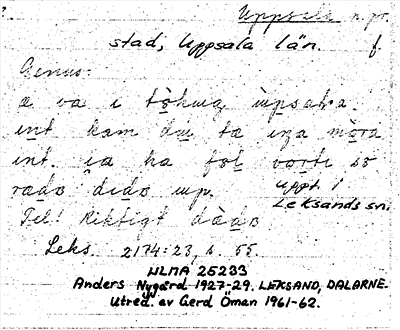 Uppsala n. pr.
stad, Uppsala län. f
Genus:
a va i tòkug ùpsara.
int kam du ta iga mòra
int. ja ha fol vorti so
rädo dido up. Uppt. i
Leksands sn.
Tel! Riktigt dàdo
Leks. 2174:23, s. 55.
ULMA 25233
Anders Nygård 1927-29. LEKSAND, DALARNE.
Utred. av Gerd Öman 1961-62.